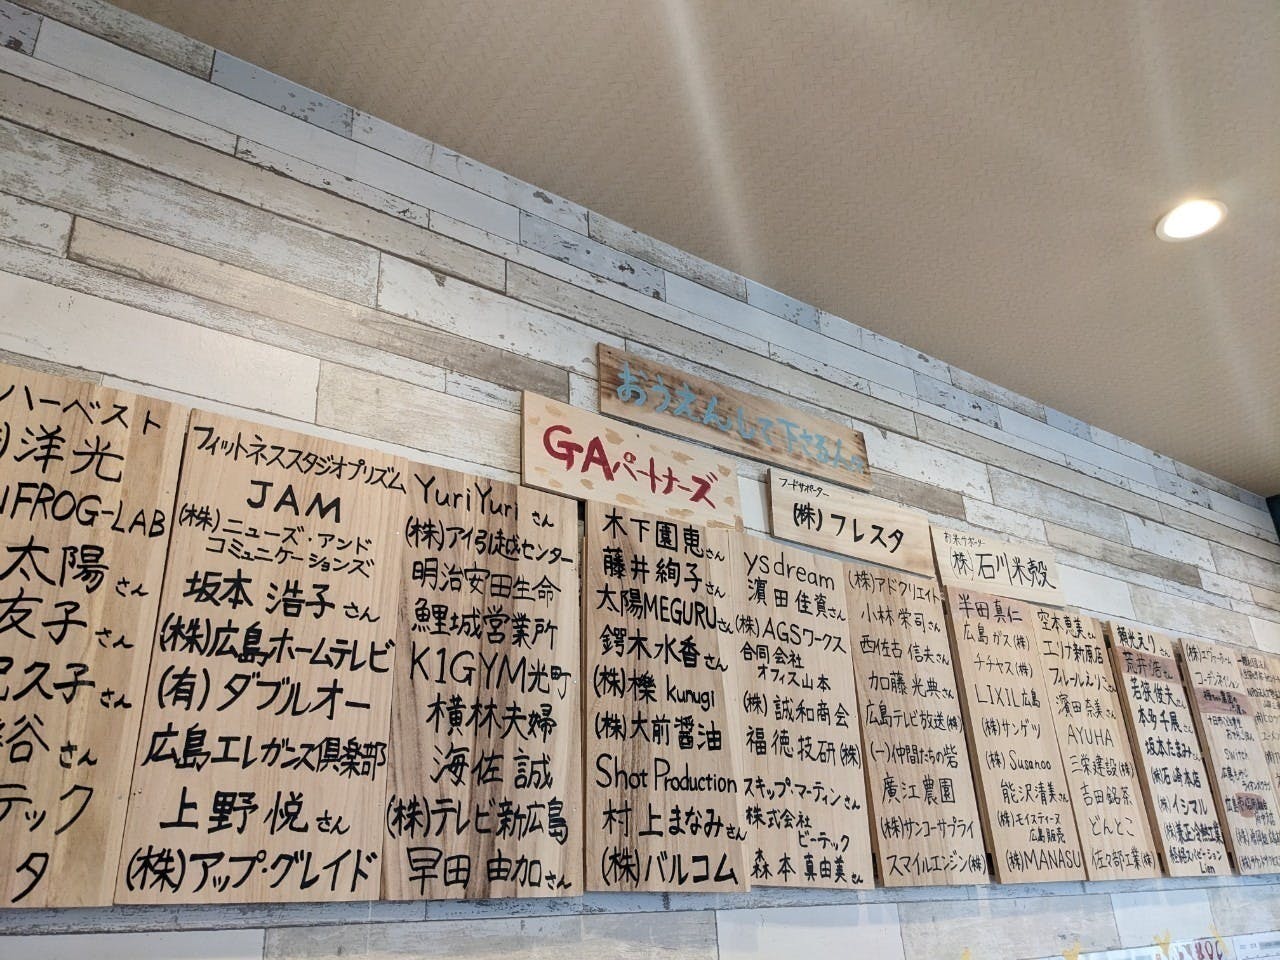 おうえんして下さる人
GAパートナーズ
フードサポーター
(株)フレスタ
お米サポーター
(株)石川米穀
ハーベスト
洋光
FROG-LAB
太陽さん
友子さん
久子さん
谷さん
テック
タ
フィットネススタジオプリズム
JAM
(株)ニューズ・アンド
コミュニケーションズ
坂本 浩子さん
(株)広島ホームテレビ
(有)ダブルオー
広島エレガンス倶楽部
上野 悦さん
(株)アップ・グレイド
YuriYuriさん
(株)アイ引越センター
明治安田生命
鯉城営業所
K1GYM光町
横林夫婦
海佐 誠
(株)テレビ新広島
早田 由加さん
木下園恵さん
藤井絢子さん
太陽MEGURUさん
鍔木水香さん
(株)櫟 kunugi
(株)大前醤油
Shot Production
村上まなみさん
(株)バルコム
ysdream
濱田佳資さん
(株)AGSワークス
合同会社
オフィス山本
(株)誠和商会
福徳技研(株)
スキップ・マーティンさん
株式会社
ビーテック
森本 真由美さん
(株)アドクリエイト
小林栄司さん
西佐古 信夫さん
加藤光典さん
広島テレビ放送(株)
(一)仲間たちの砦
廣江農園
(株)サンコーサプライ
スマイルエンジン(株)
半田真仁
広島ガス(株)
チチヤス(株)
LIXIL広島
(株)サンゲツ
(株)Susanoo
能沢清美さん
(株)モイスティーヌ
広島販売
(株)MANASU
空本恵美さん
エリア新原店
フルールえりこさん
濱田奈美さん
AYUHA
三栄建設(株)
吉田銘茶
どんとこ
佐々部工業(株)
頼光えりさん
荒井浩さん
若狭俊夫さん
本多千展さん
坂本たまみさん
(株)石崎本店
(株)イシマル